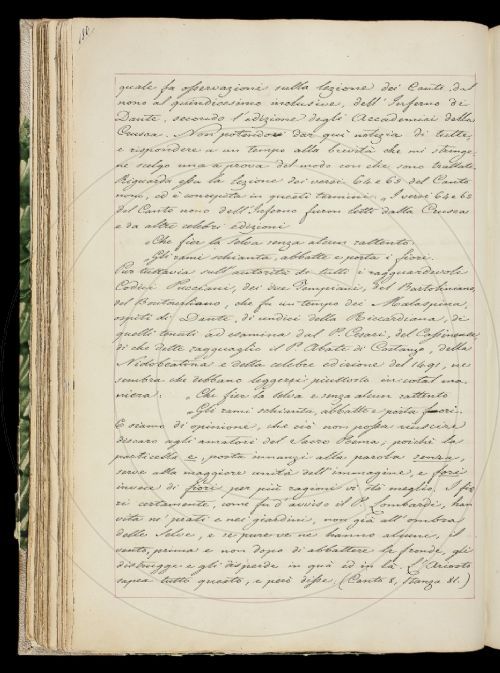 180.
quale fa osservazioni sulla lezione dei Canti, dal
nono al quindicesimo inclusive, dell'Inferno di
Dante, secondo l'edizione degli Accademici della
Crusca. Non potendosi dar qui notizia di tutte,
e rispondere a un tempo alla brevità che mi stringe,
ne scelgo una a prova del modo con che sono trattate.
Riguarda essa la lezione dei versi 64 e 69 del Canto
nono, ed è concepita in questi termini: „I versi 64 e 69
del Canto nono dell'Inferno furon letti dalla Crusca
e da altre celebri edizioni
„Che fier la selva senza alcun rattento.
„Gli rami schianta, abbatte e porta i fiori.
Pur tuttavia sull'autorità de tutti i ragguardevoli
Codici Pucciani, dei due Tempiani, del Bartoliniano,
del Bentacoliano, che fu un tempo dei Malaspina,
ospiti di Dante, di undici della Riccardiana, di
quelli tenuti ad esamina dal P. Cesari, del Cassinense
di che dette ragguaglio il P. Abate di Costanzo, della
Nidobeatina e della celebre edizione del 1491, ne
sembra che debbano leggersi piuttosto in cotal ma-
niera: „Che fier la selva e senza alcun rattento
„Gli rami schianta, abbatte e porta fuori.
E siamo di opinione, che ciò non possa riuscire
discaro agli amatori del Sacro Poema; poichè la
particella e, posta innanzi alla parola senza,
serve alla maggiore unità dell'immagine, e fori
invece di fiori per più ragioni vi stà meglio. I fio-
ri certamente, come fu d'avviso il P. Lombardi, han
vita ne' prati e nei giardini, non già all'ombra
delle Selve, e se pure ve ne hanno alcuni, il
vento, prima e non dopo di abbattere le fronde, gli
distrugge e gli disperde in quà ed in là. L'Ariosto
sapea tutto questo, e però disse (Canto 8, stanza 81.)